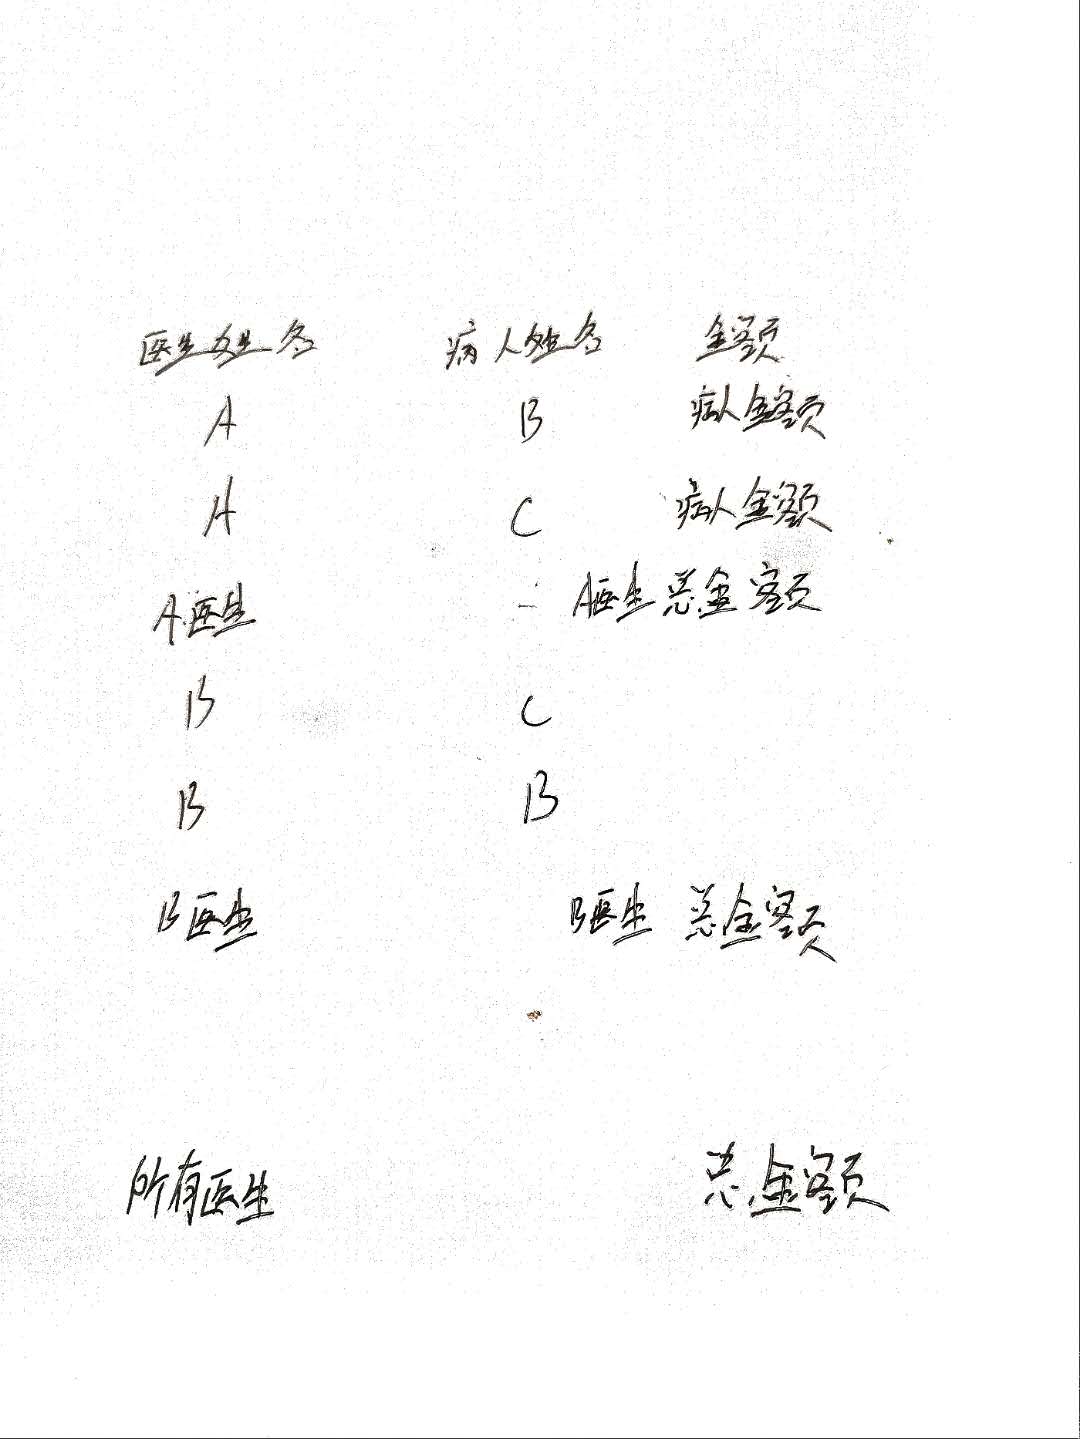 医生姓名 病人姓名 金额
A B 病人金额
A C 病人金额
A医生 - A医生总金额
B C
B B
B医生 B医生 总金额
所有医生 总金额